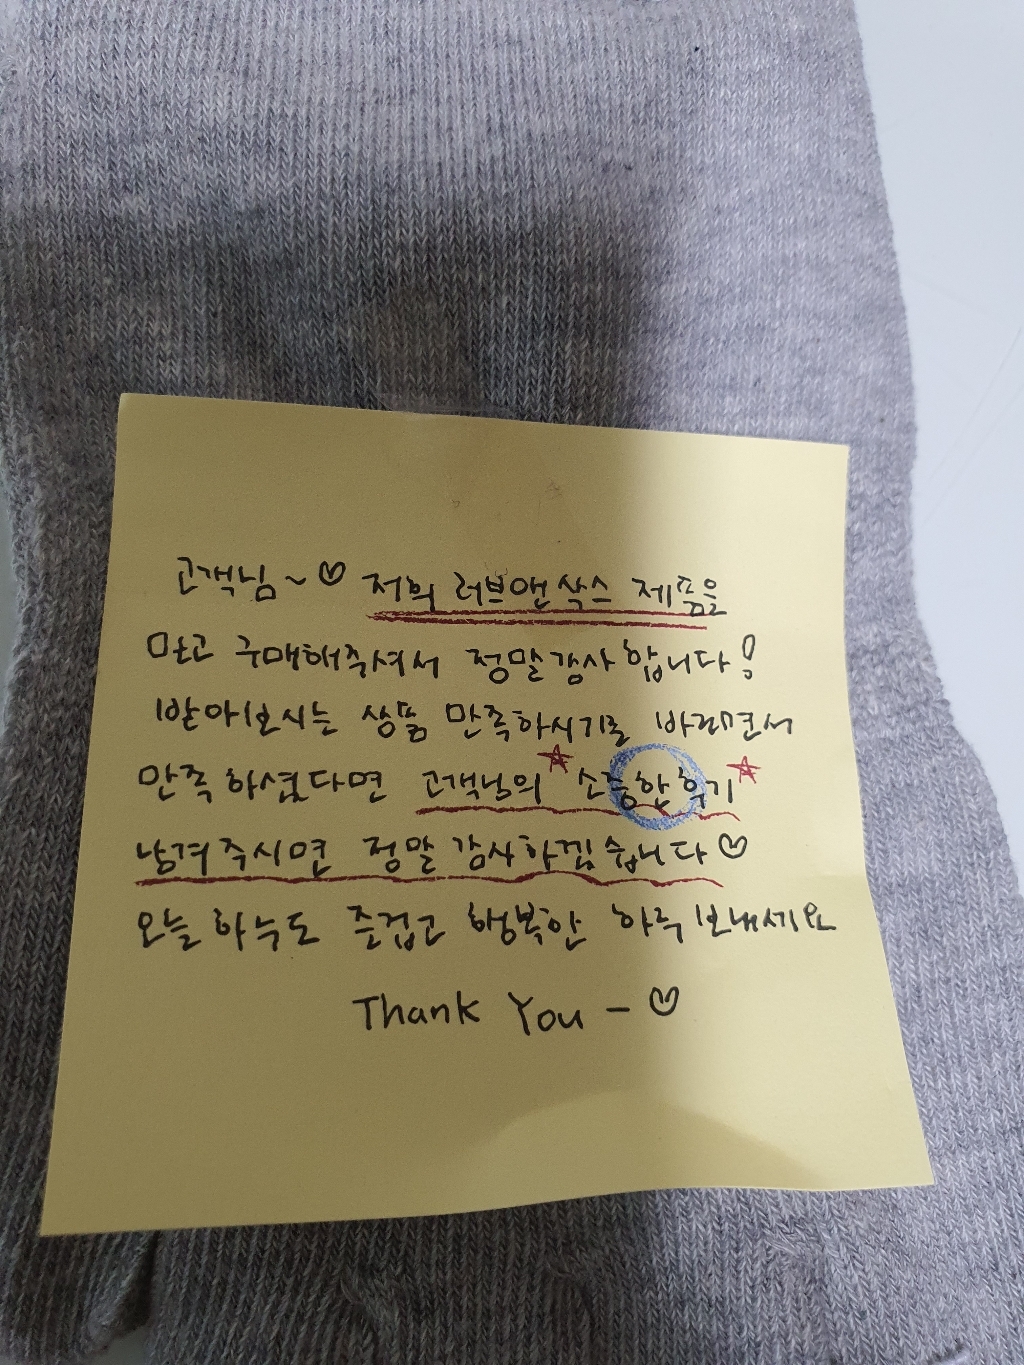 고객님~♡ 저희 러브앤삭스 제품을
믿고 구매해주셔서 정말감사합니다!
받아보시는 상품 만족하시기를 바라면서
만족하셨다면 고객님의 ☆소중한후기☆
남겨주시면 정말 감사하겠습니다♡
오늘 하루도 즐겁고 행복한 하루 보내세요
Thank You - ♡